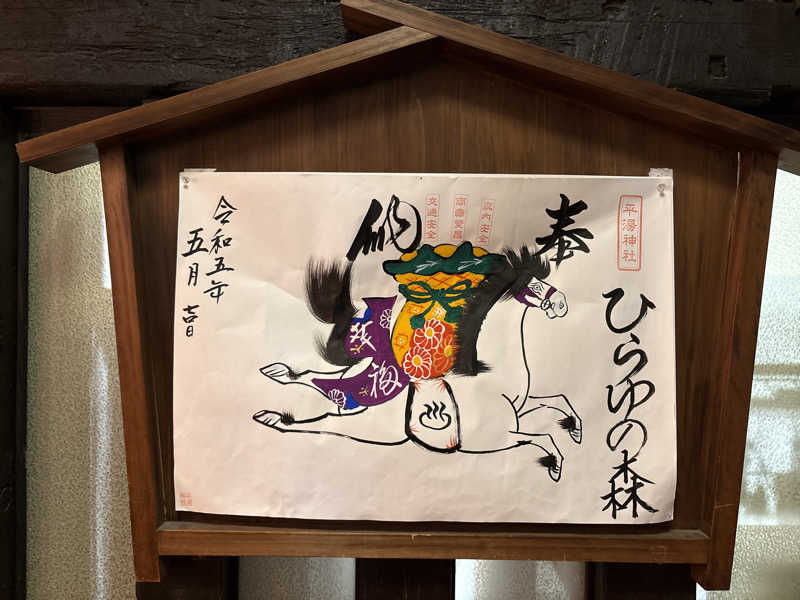 平湯神社
ひらゆの森
奉納
家内安全
商売繁昌
交通安全
招福
令和五年
五月吉日